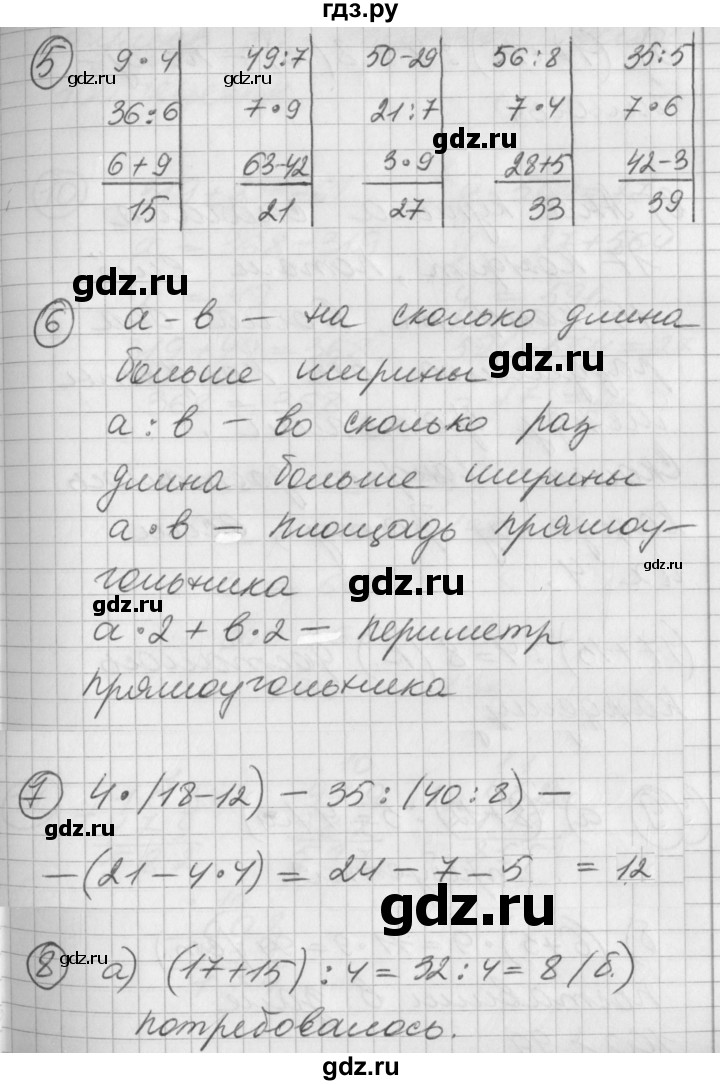 гдз.ру
5 9·4 49:7 50-29 56:8 35:5
gdz.ru gdz.ru gdz.ru
36:6 7·9 21:7 7·4 7·6
gdz.ru
6+9 63-42 3·9 28+5 42-3
15 21 27 33 39
gdz.ru
6 а-в — на сколько длина
больше ширины
gdz.ru
а:в — во сколько раз
длина больше ширины
а·в — площадь прямоу-
gdz.ru
гольника
gdz.ru gdz.ru
а·2+в·2 — периметр
прямоугольника
7 4·(18-12) - 35:(40:8) -
gdz.ru
-(21-4·4) = 24-7-5 = 12
gdz.ru
8 gdz.ru а) (17+15):4=32:4=8 (б.)
потребовалось.
gdz.ru
gdz.ru